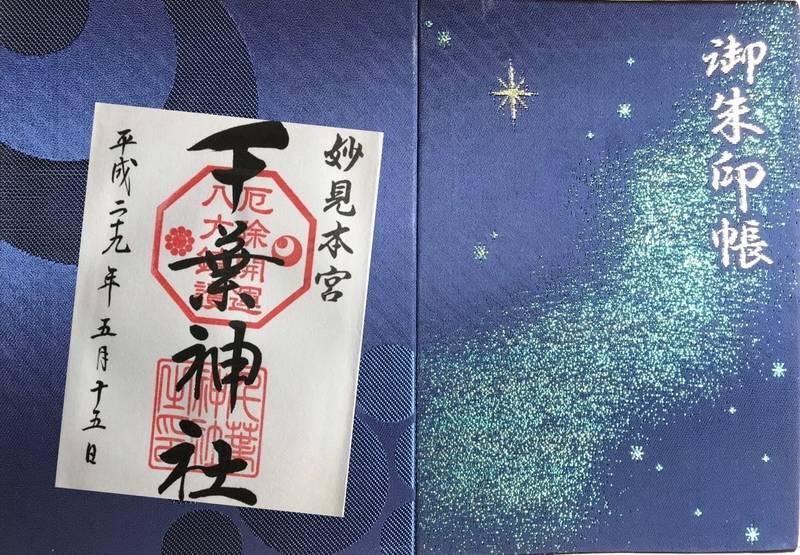 御朱印帳
妙見本宮
千葉神社
厄除開運
八方除護
平成二十九年五月十五日